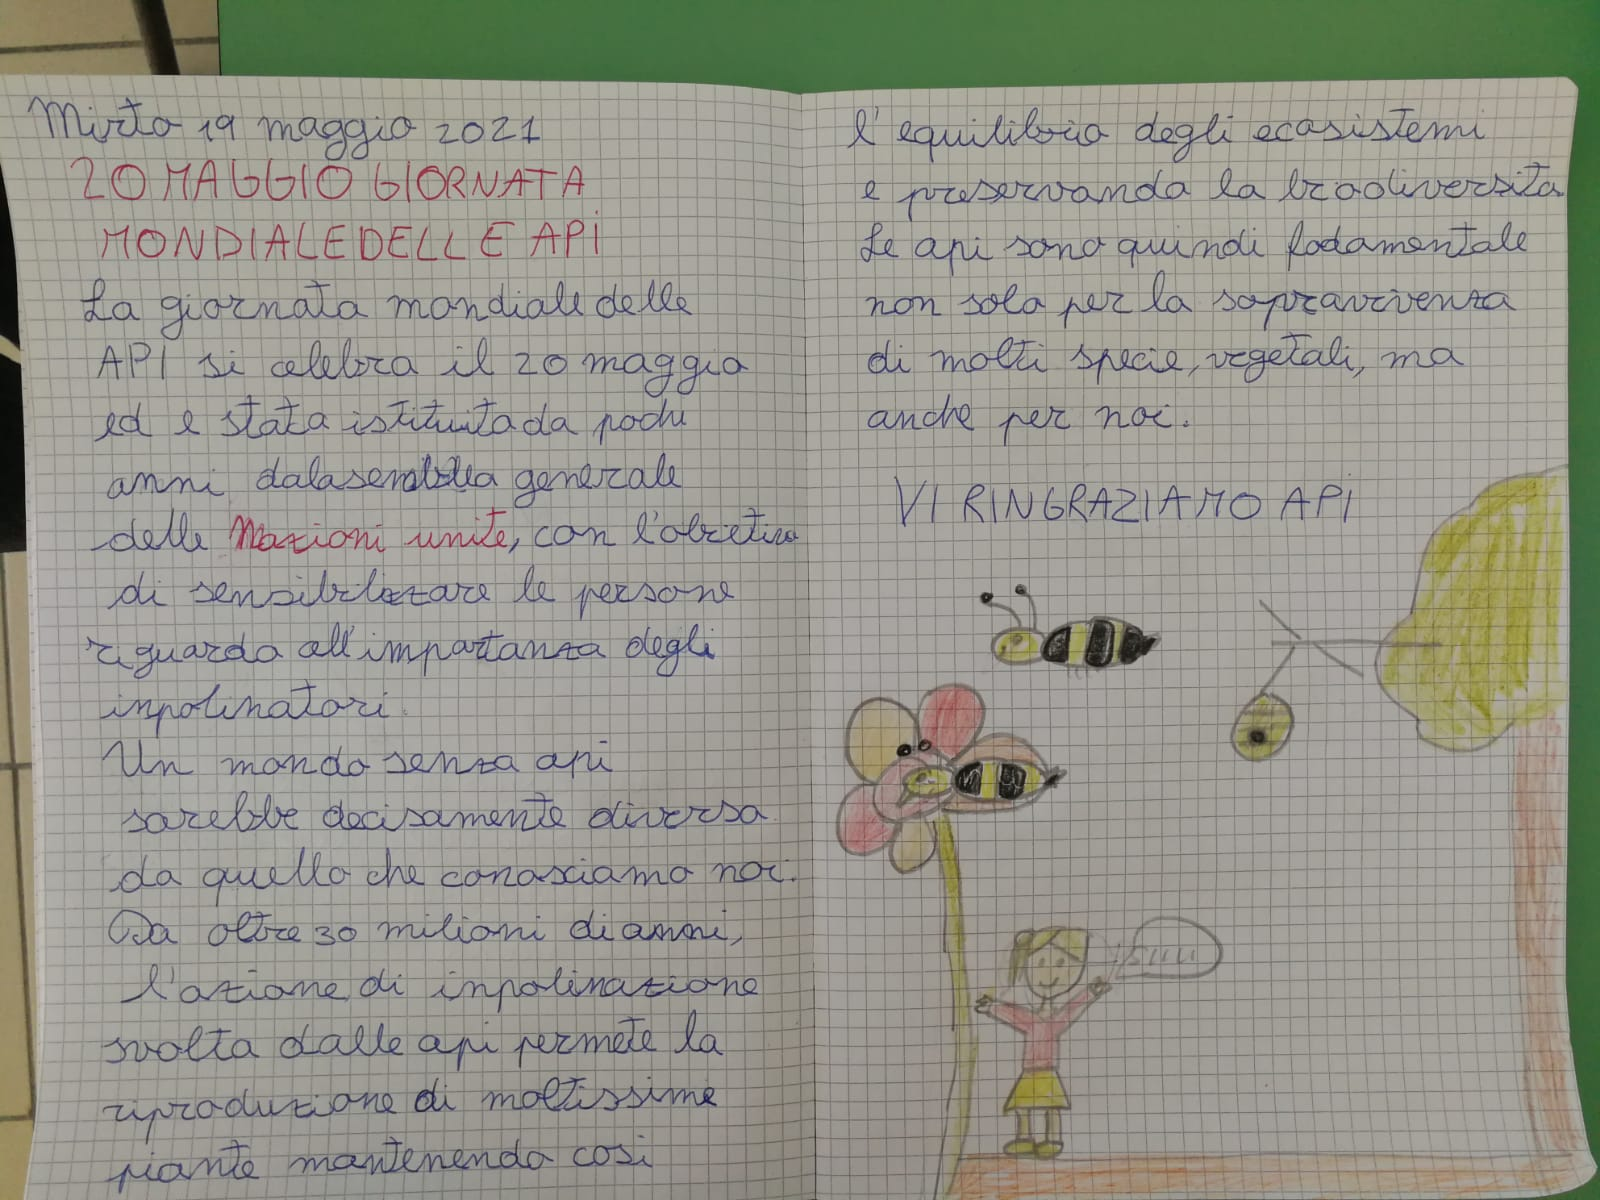 Mirto 19 maggio 2021
20 MAGGIO GIORNATA
MONDIALE DELLE API
La giornata mondiale delle
API si celebra il 20 maggio
ed e stata istituita da pochi
anni dalasemblea generale
delle Nazioni unite, con l'obietivo
di sensibilizzare le persone
riguardo all'importanza degli
inpolinatori.
Un mondo senza api
sarebbe decisamente diverso
da quello che conosciamo noi.
Da oltre 30 milioni di anni,
l'azione di inpolinazione
svolta dalle api permete la
riproduzione di moltissime
piante mantenendo cosi
l'equilibrio degli ecosistemi
e preservando la biodiversita
Le api sono quindi fodamentale
non solo per la sopravvivenza
di molti specie, vegetali, ma
anche per noi.
VI RINGRAZIAMO API